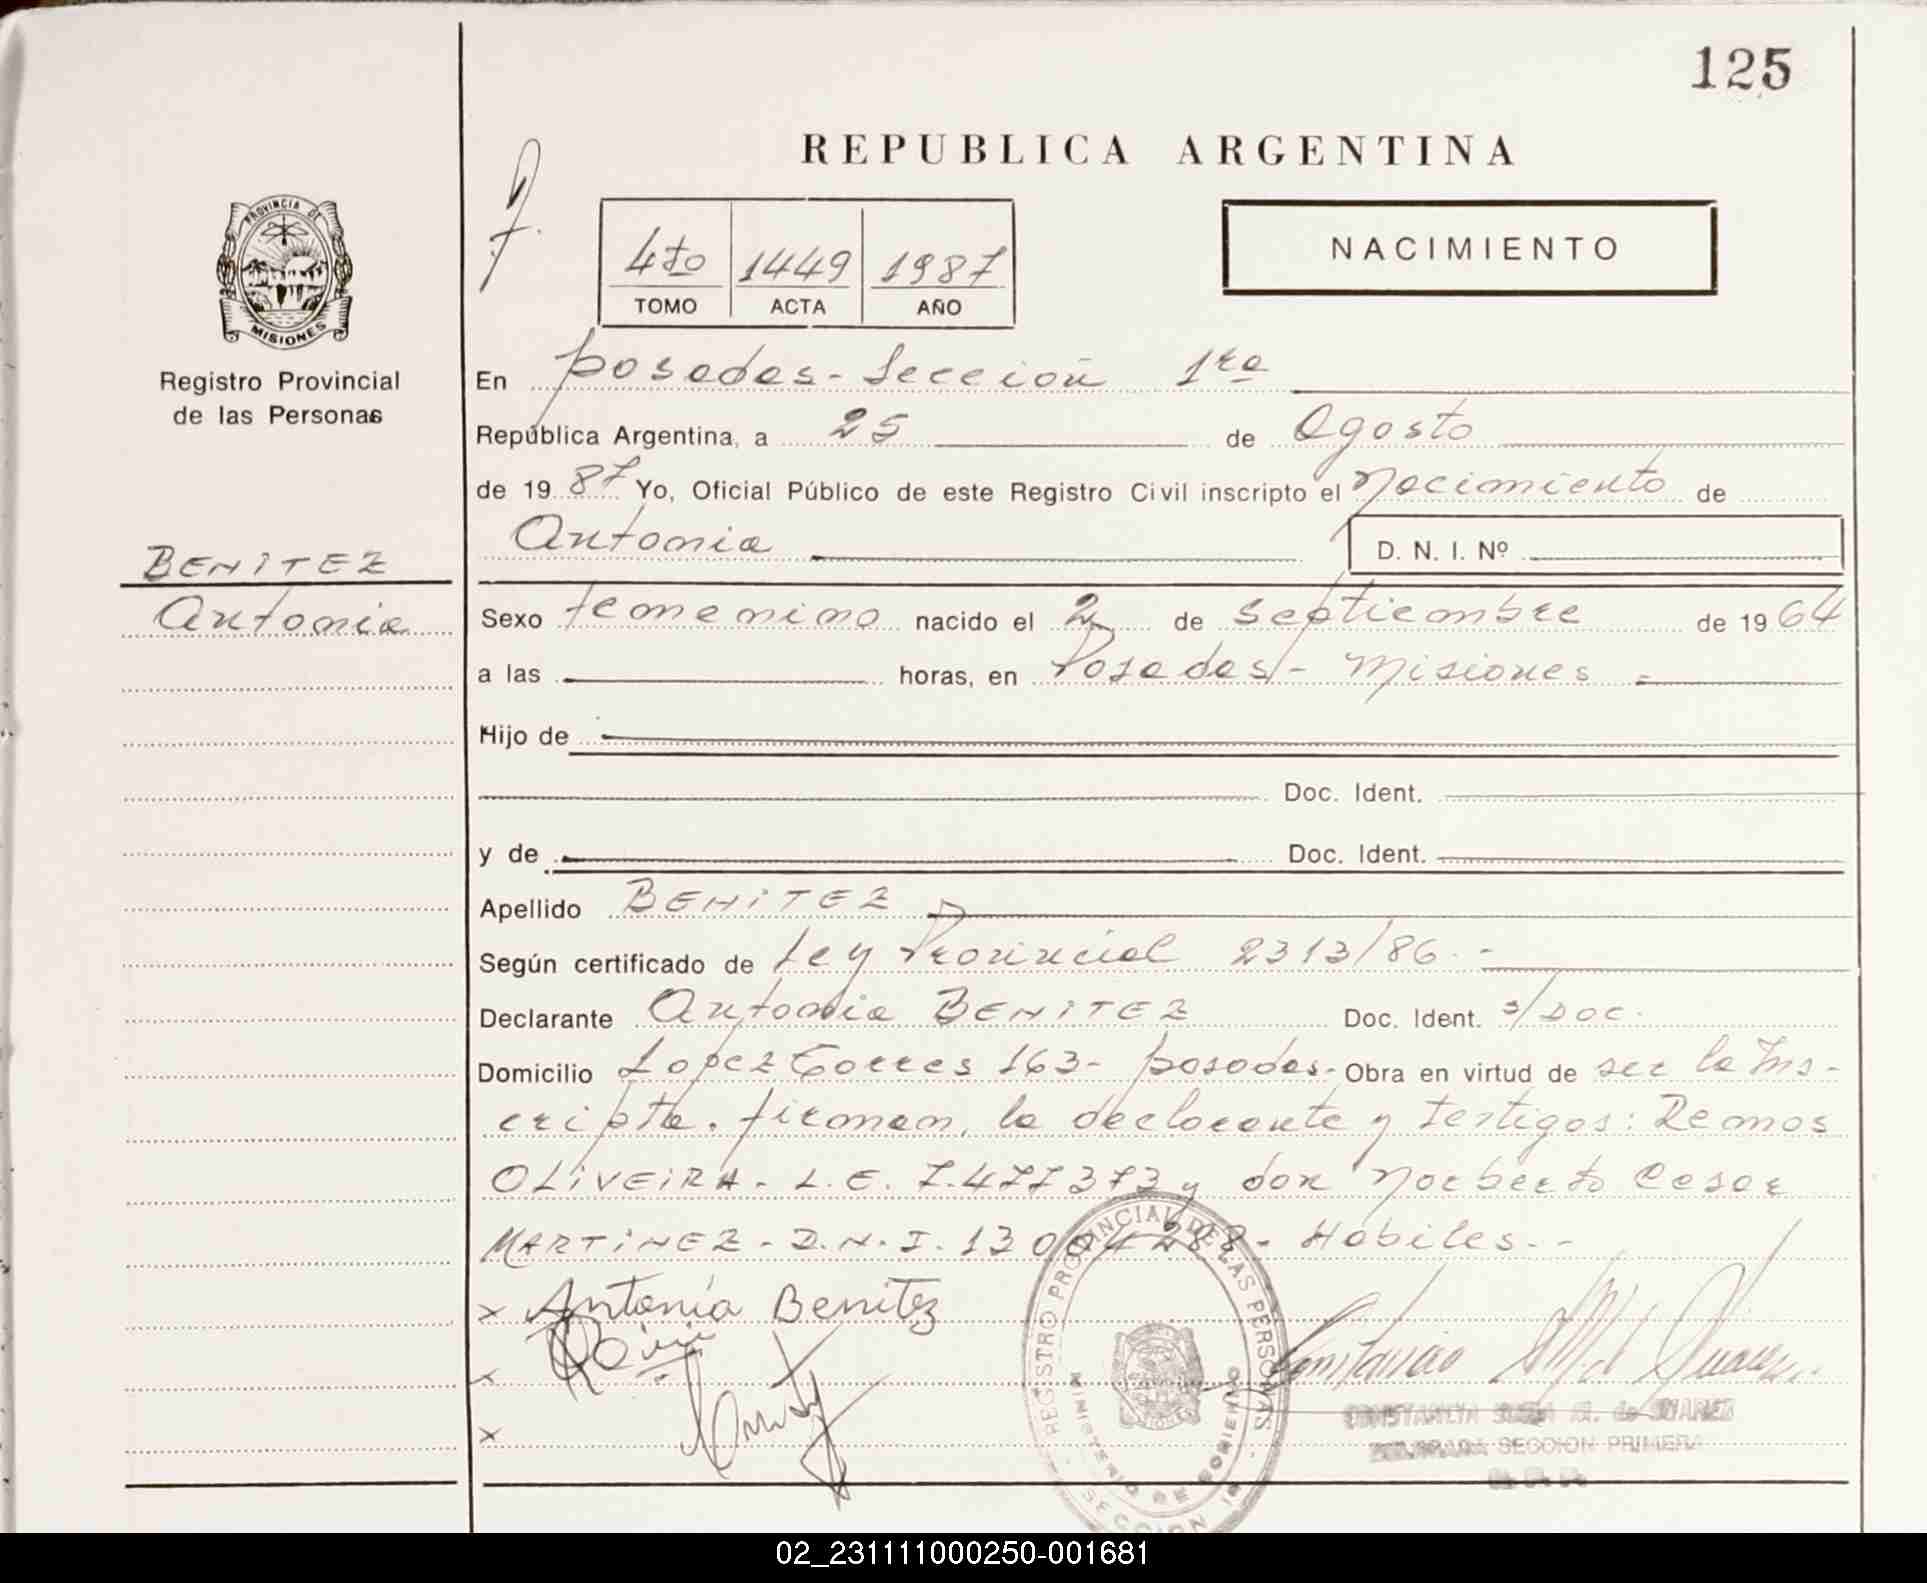 125
REPUBLICA ARGENTINA
PROVINCIA DE
MISIONES
Registro Provincial
de las Personas
4to 1449 1987
TOMO ACTA AÑO
NACIMIENTO
En Posadas - Sección 1ra
República Argentina, a 25 de Agosto
de 1987 Yo, Oficial Público de este Registro Civil inscripto el Nacimiento de
Antonia
D. N. I. Nº
BENITEZ
Antonia
Sexo femenino nacido el 2 de Septiembre de 1964
a las horas, en Posadas - Misiones
Hijo de
Doc. Ident.
y de Doc. Ident.
Apellido BENITEZ
Según certificado de Ley Provincial 2313/86.-
Declarante Antonia BENITEZ Doc. Ident. s/DOC.
Domicilio Lopez Torres 163- Posadas- Obra en virtud de ser la Ins-
cripta. firman, la declarante y testigos: Ramos
OLIVEIRA - L.E. 7.477373 y don Norberto Cesar
MARTINEZ - D.N.I. 13004288 - Habiles.-
x Antonia Benitez
x
x
REGISTRO PROVINCIAL DE LAS PERSONAS
MINISTERIO DE GOBIERNO
SECCION
CONSTANCIA M. de SUAREZ
SECCION PRIMERA
02_231111000250-001681